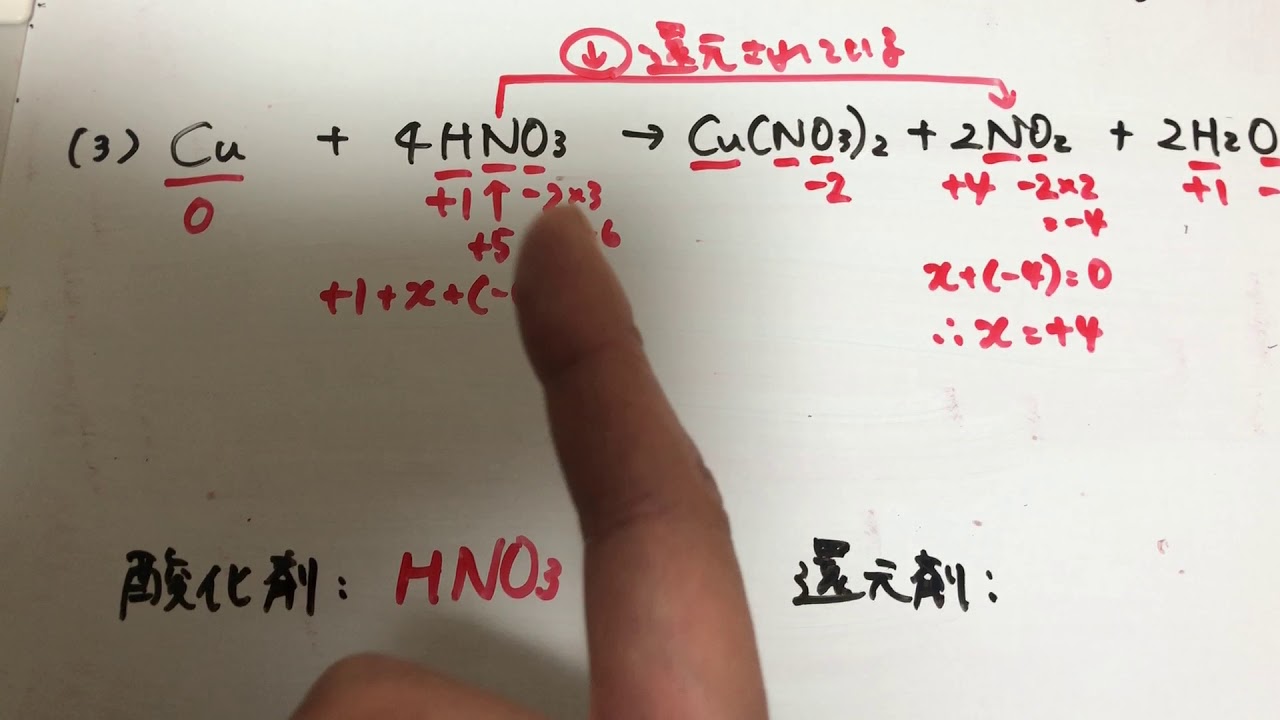 ↓ 還元されている
(3) Cu + 4HNO₃ → Cu(NO₃)₂ + 2NO₂ + 2H₂O
0 +1 ↑ -2×3 -2 +4 -2×2 +1 -
+5 6 =-4
+1+x+(- x+(-4)=0
∴x=+4
酸化剤: HNO₃ 還元剤: